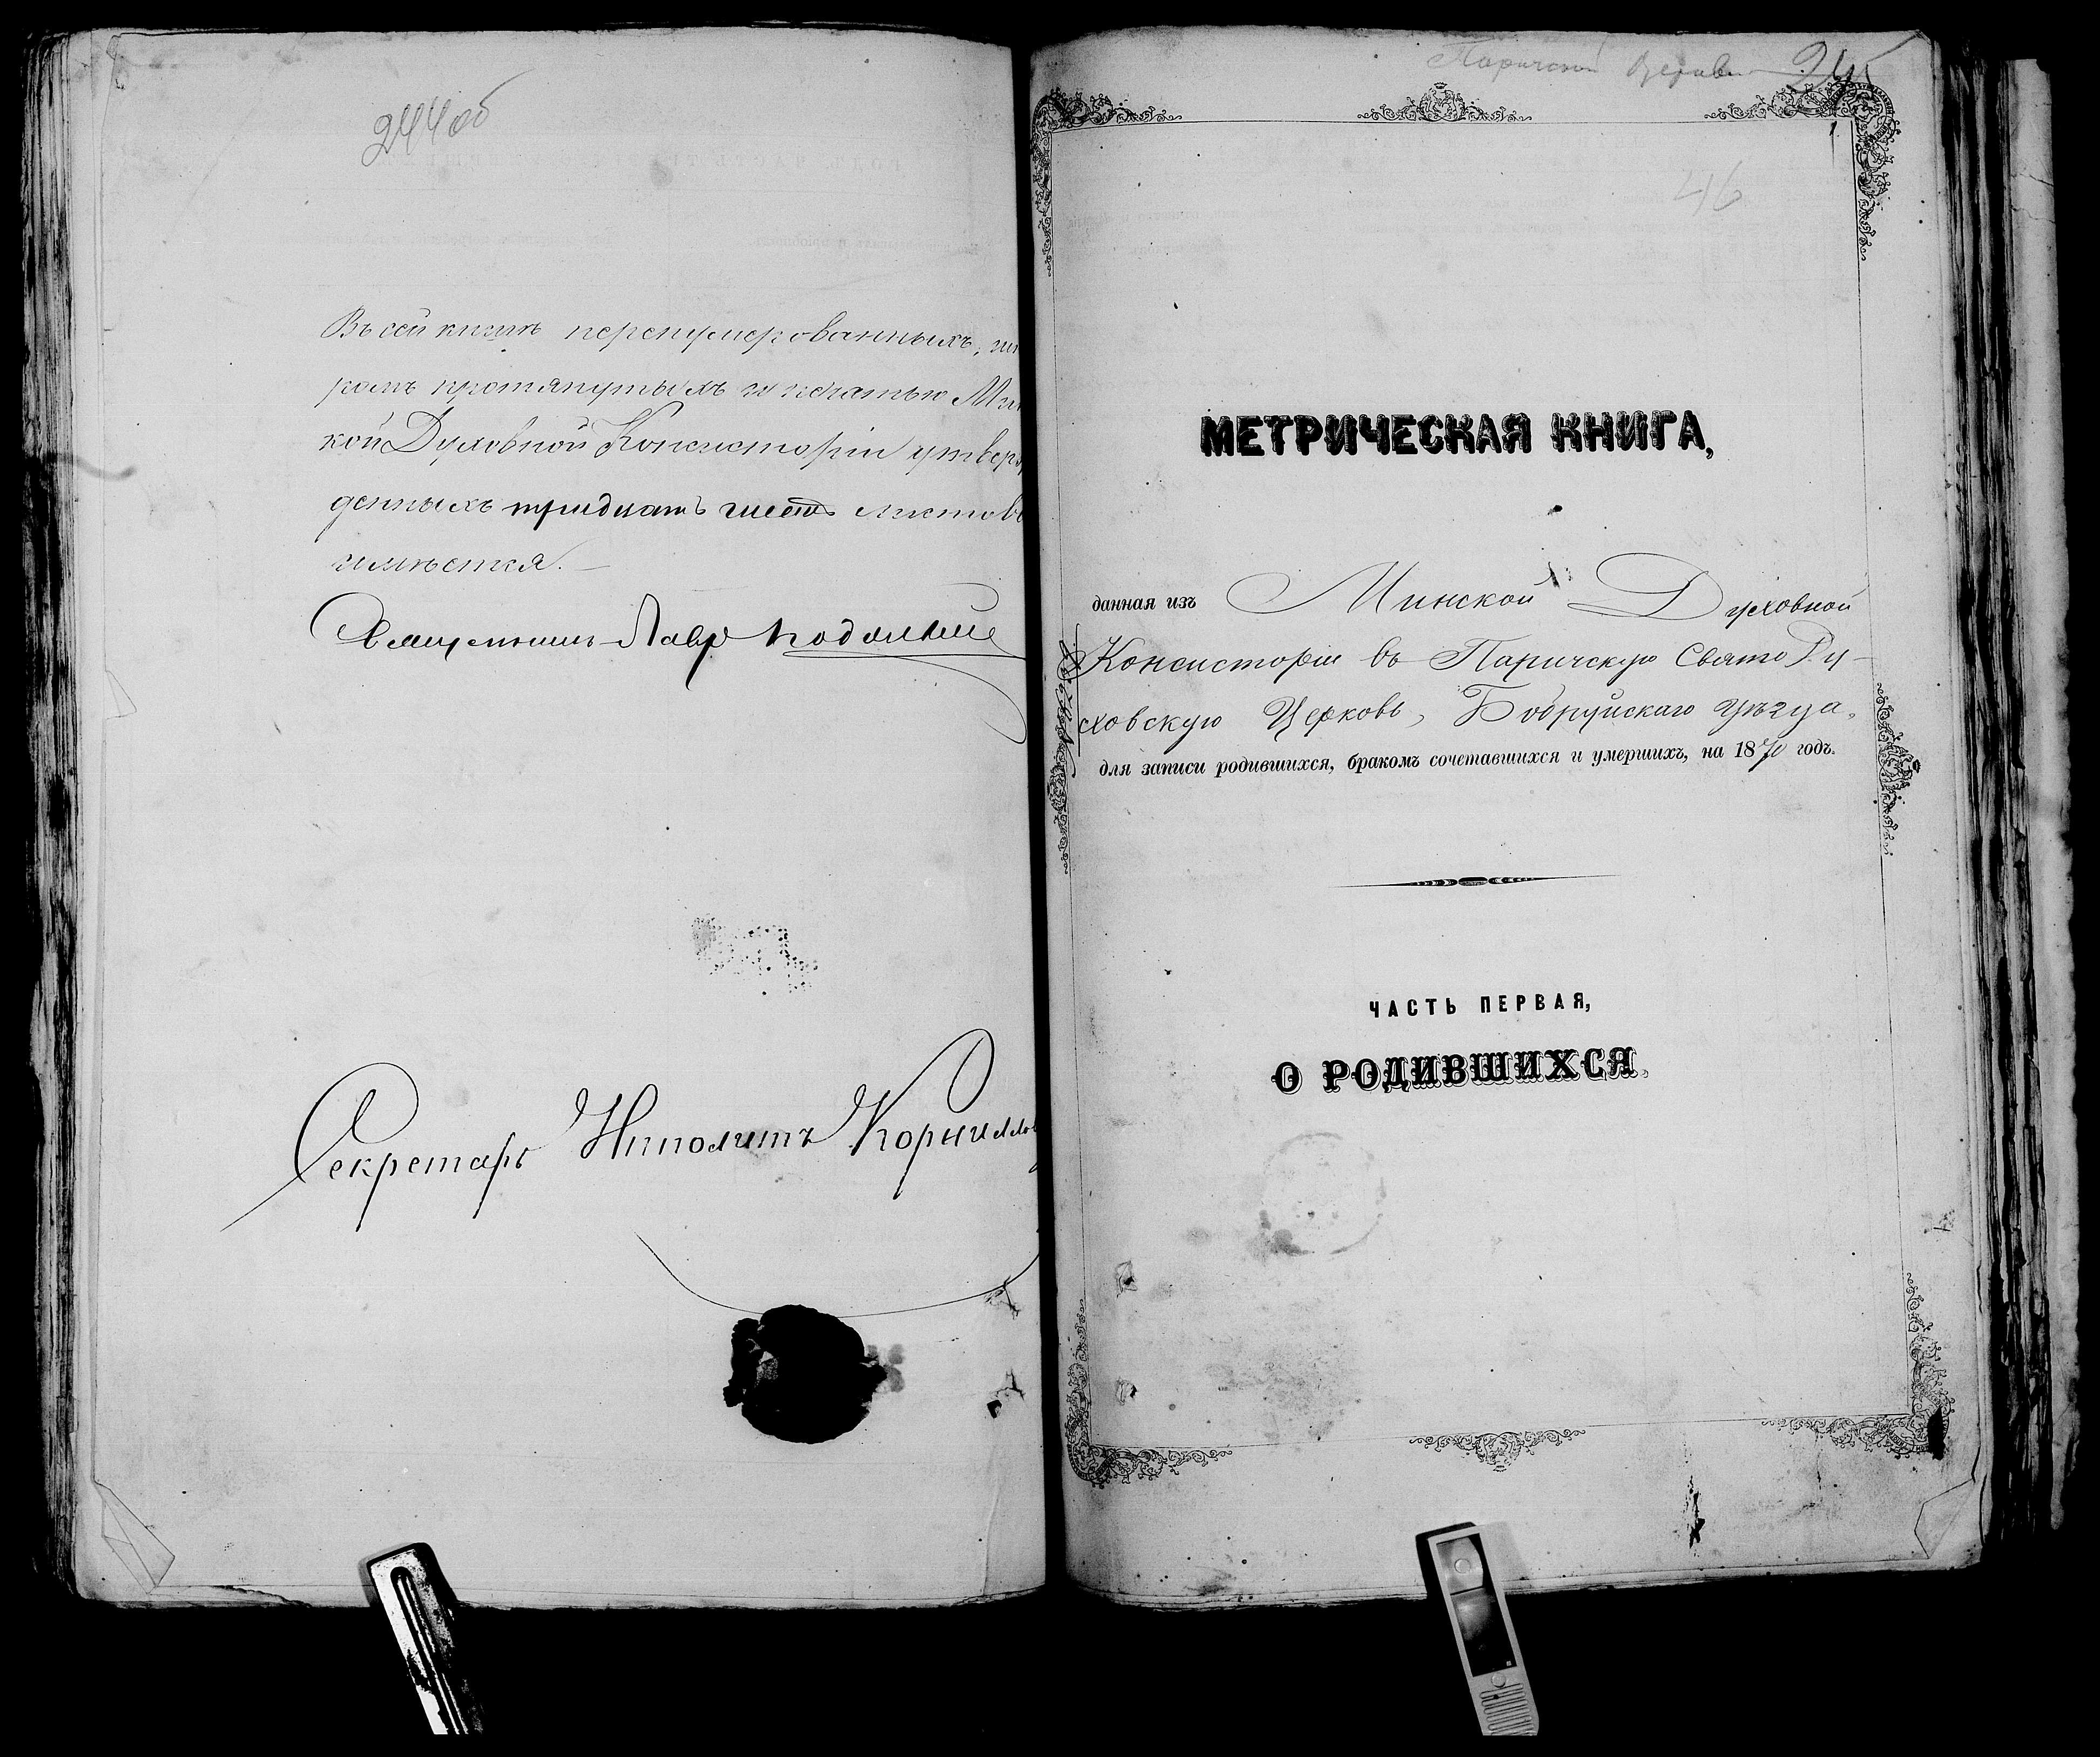 244об
Въ сей книгѣ перенумерованныхъ, шн
ромъ протянутыхъ и печатью Мин
кой Духовной Консисторіи утверж
денныхъ тридцать шесть листовъ
имѣется.
Священникъ Лавр
Секретарь Ипполитъ Корнилло
Паричской Церкви 245
46
МЕТРИЧЕСКАЯ КНИГА,
данная изъ Минской Духовной
Консисторіи въ Паричскую Свято Ду-
ховскую Церковь, Бобруйскаго уѣзда,
для записи родившихся, бракомъ сочетавшихся и умершихъ, на 1870 годъ.
ЧАСТЬ ПЕРВАЯ,
О РОДИВШИХСЯ.